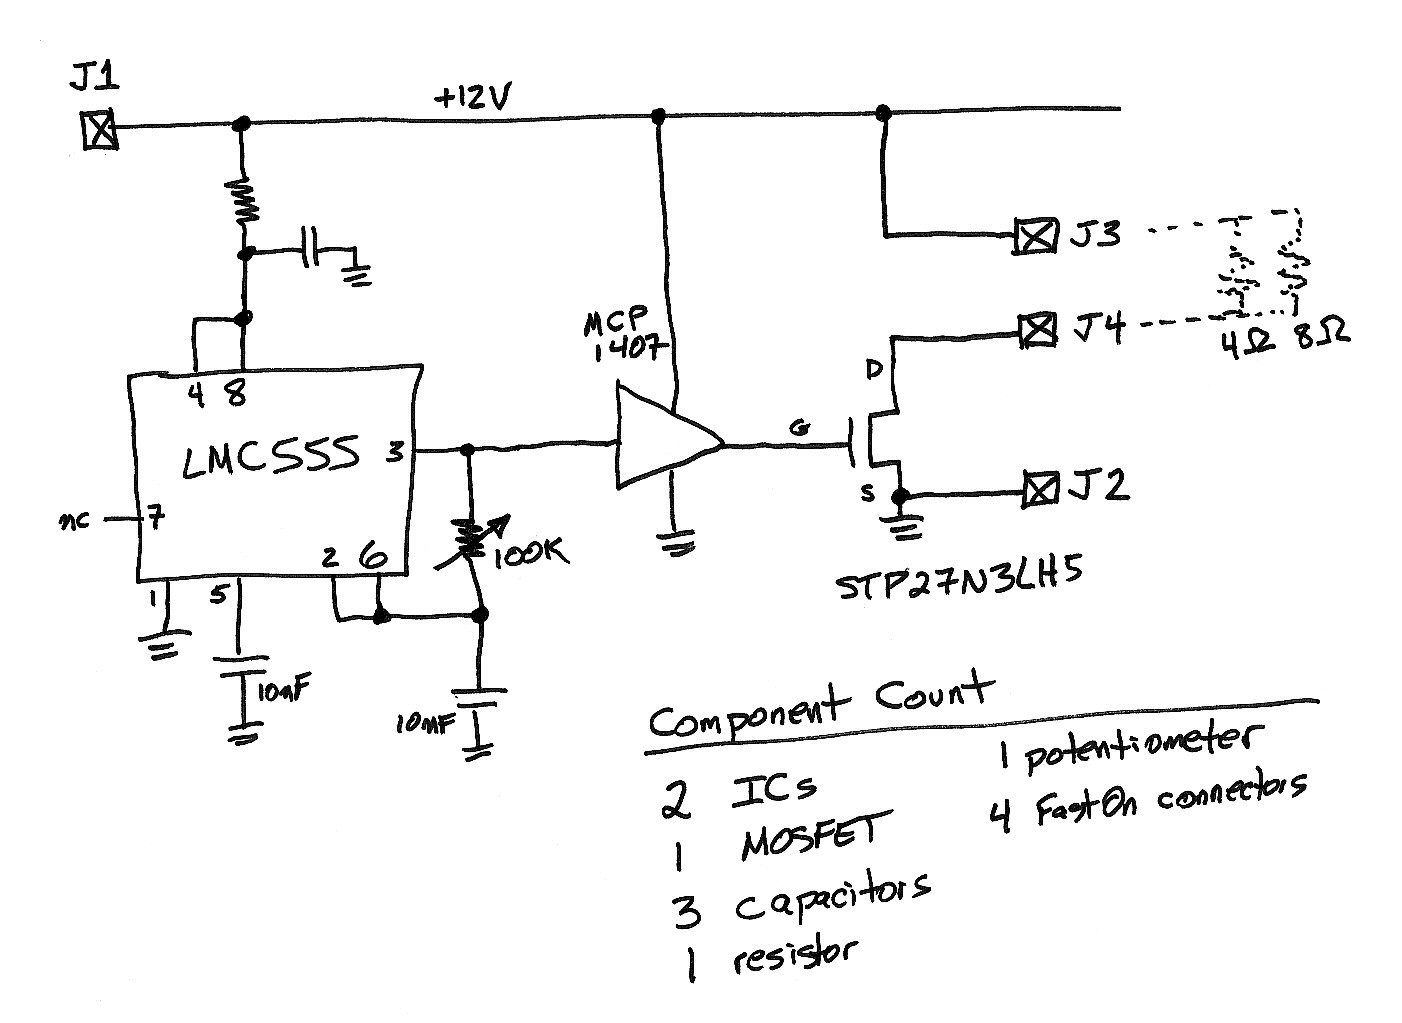 J1
+12V
J3
MCP
1407
J4
4Ω 8Ω
D
4 8
LMC555
3
G
S
J2
nc
7
2 6
100K
1
5
STP27N3LH5
10nF
10nF
Component Count
2 ICs
1 MOSFET
3 capacitors
1 resistor
1 potentiometer
4 FastOn connectors